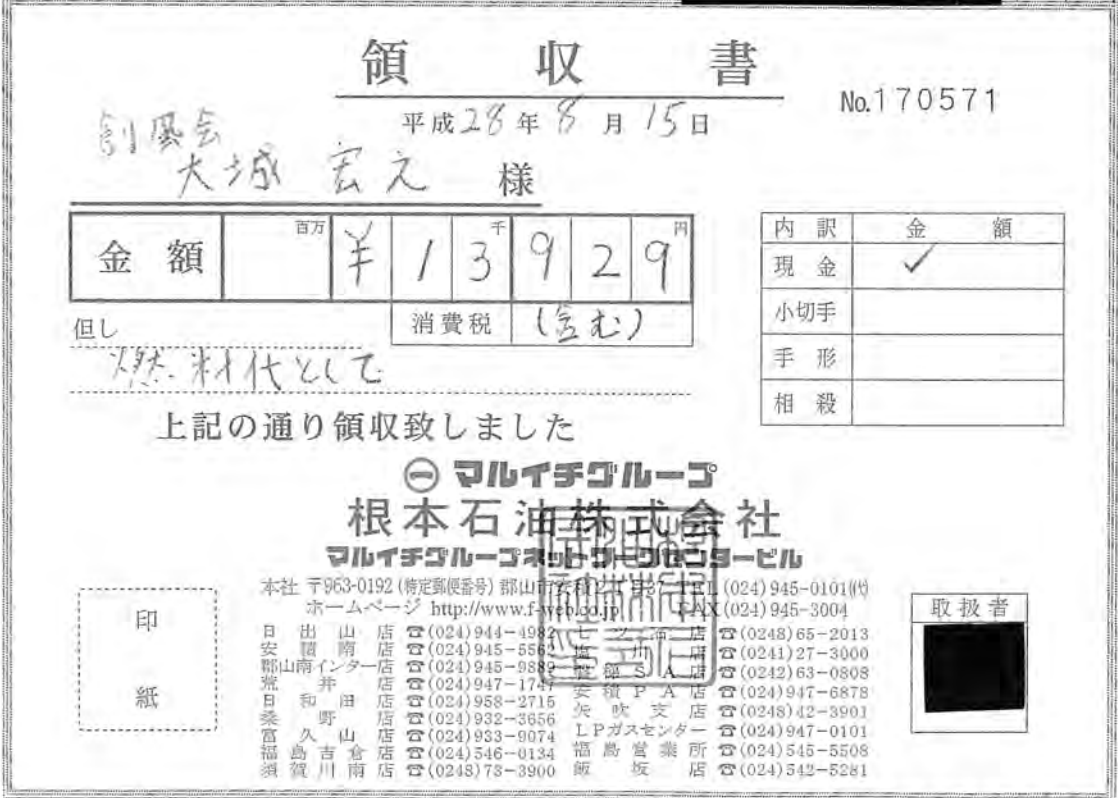 領収書
No.170571
平成28年8月15日
創風会
大城 宏之 様
金額 百万 ¥13千929円
消費税 (含む)
但し
燃料代として
内訳 金額
現金 ✓
小切手
手形
相殺
上記の通り領収致しました
㊀ マルイチグループ
根本石油株式会社
マルイチグループネットワークセンタービル
本社 〒963-0192 (特定郵便番号) 郡山市安積 TEL (024) 945-0101㈹
ホームページ http://www.f-web.co.jp FAX (024) 945-3004
印紙
取扱者
日出山店 ☎(024)944-4982
安積南店 ☎(024)945-5562
郡山南インター店 ☎(024)945-9889
荒井店 ☎(024)947-1747
日和田店 ☎(024)958-2715
桑野店 ☎(024)932-3656
富久山店 ☎(024)933-9074
福島吉倉店 ☎(024)546-0134
須賀川南店 ☎(0248)73-3900
店 ☎(0248)65-2013
川店 ☎(0241)27-3000
SA店 ☎(0242)63-0808
安積PA店 ☎(024)947-6878
矢吹支店 ☎(0248)42-3901
LPガスセンター ☎(024)947-0101
福島営業所 ☎(024)545-5508
飯坂店 ☎(024)542-5281